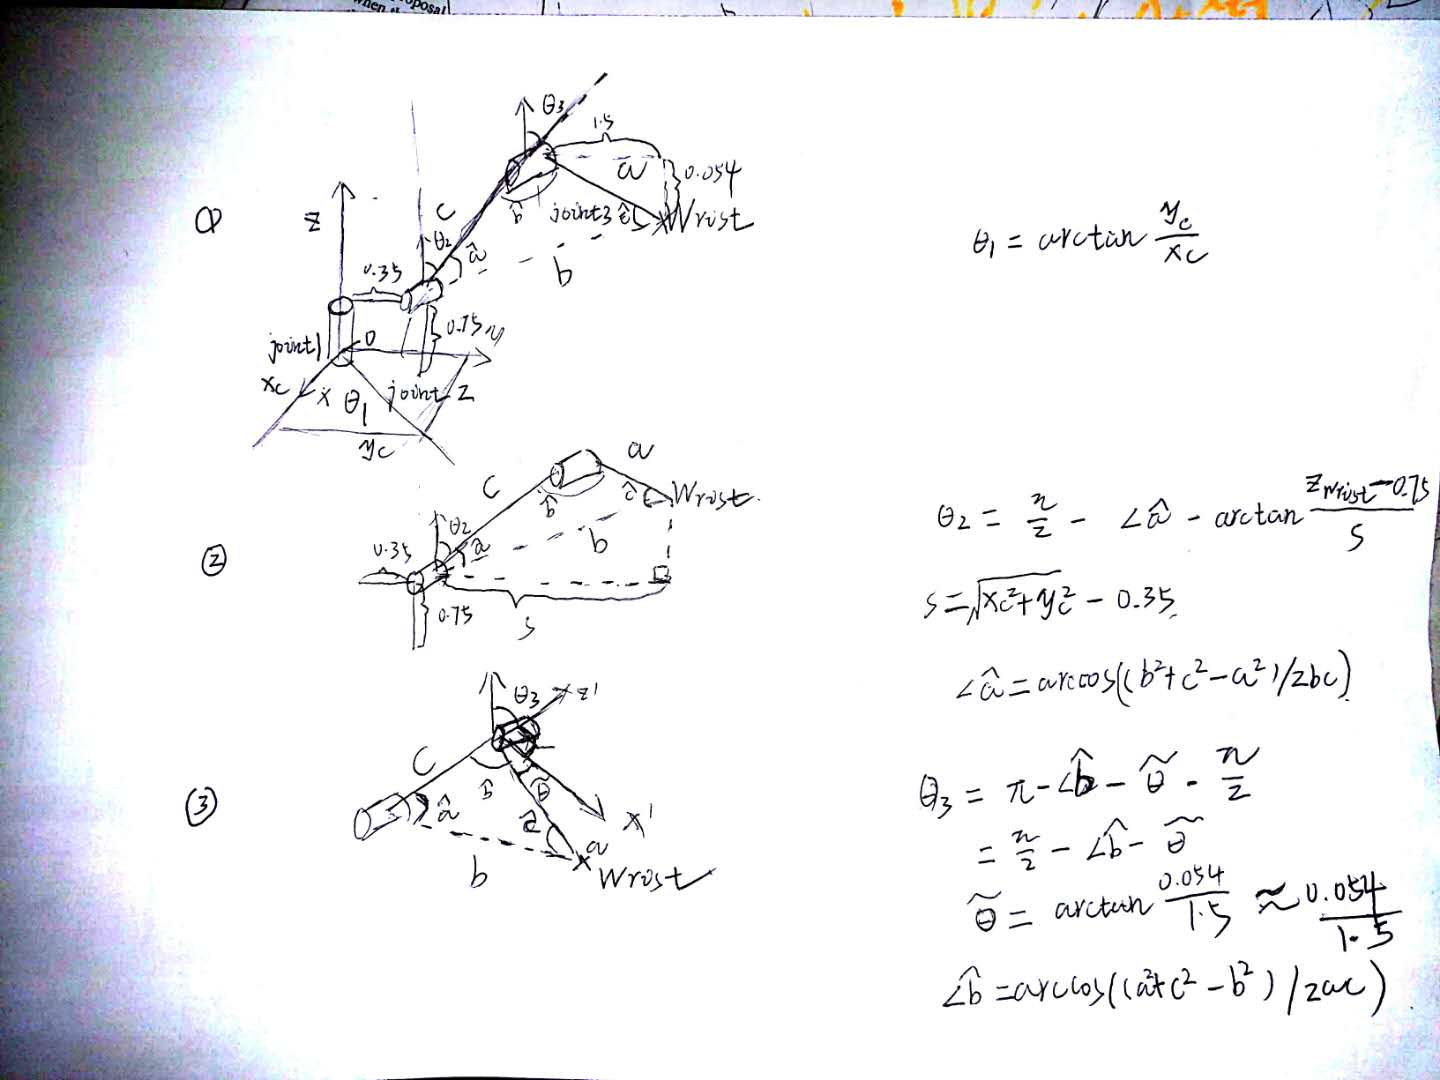 when
oposal
①
z
θ3
1.5
a
0.054
c
b̂
joint3
ĉ
Wrist
θ2
â
b
0.35
0.75
y
joint1
O
xc
x
θ1
joint 2
yc
θ1 = arctan yc/xc
②
c
a
b̂
ĉ
Wrist
θ2
â
b
0.35
0.75
s
θ2 = π/2 - ∠â - arctan (zwrist-0.75)/s
s=√(xc²+yc²) - 0.35
∠â = arccos((b²+c²-a²)/2bc)
③
θ3
z'
c
b̂
θ̃
â
ĉ
x'
a
b
Wrist
θ3 = π-∠b̂-θ̃-π/2
= π/2 - ∠b̂ - θ̃
θ̃ = arctan 0.054/1.5 ≈ 0.054/1.5
∠b̂ = arccos((a²+c²-b²)/2ac)